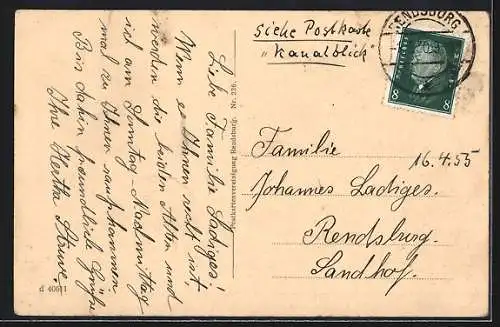 siehe Postkarte
"Kanalblick"
RENDSBURG
8 8
Liebe Familie Ladiges!
Wenn es Ihnen recht ist,
werden die beiden Alten und
ich am Sonntag Nachmittag
mal zu Ihnen raufkommen.
Bis dahin freundliche Grüße
Ihre Hertha
Postkartenvereinigung Rendsburg. Nr. 236.
Familie
16.4.55
Johannes Ladiges.
Rendsburg.
Landhof.